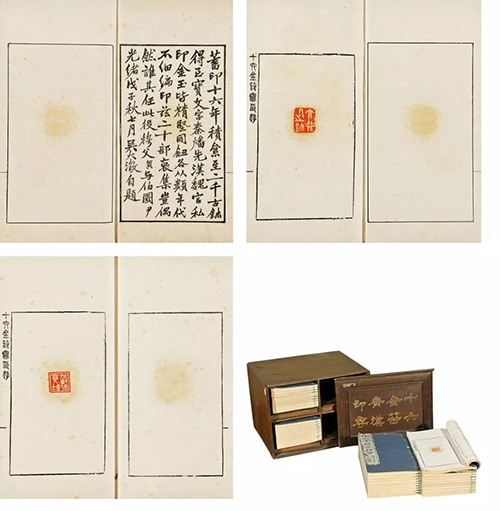 蓄印十六年積累至二千古鉨
得巨寶文字秦燔先漢魏官私
印金玉皆精堅同鈕各從類年代
不細編印茲二十部裒集豈偶
然誰其任此役穆父與伯圜尹
光緒戊子秋七月吳大澂自題
十六金符齋印存
十六金符齋印存
十六
金符
齋漢
印存